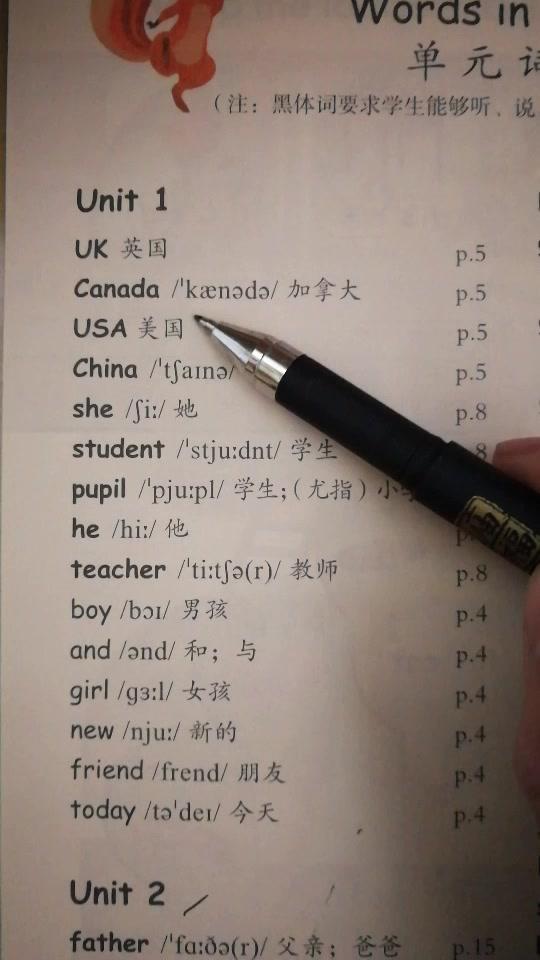 Words in
单元词
（注：黑体词要求学生能够听、说
Unit 1
UK 英国 p.5
Canada /ˈkænədə/ 加拿大 p.5
USA 美国 p.5
China /ˈtʃaɪnə/ p.5
she /ʃiː/ 她 p.8
student /ˈstjuːdnt/ 学生 8
pupil /ˈpjuːpl/ 学生；（尤指）小学
he /hiː/ 他
teacher /ˈtiːtʃə(r)/ 教师 p.8
boy /bɔɪ/ 男孩 p.4
and /ənd/ 和；与 p.4
girl /ɡɜːl/ 女孩 p.4
new /njuː/ 新的 p.4
friend /frend/ 朋友 p.4
today /təˈdeɪ/ 今天 p.4
Unit 2
father /ˈfɑːðə(r)/ 父亲；爸爸 p.15